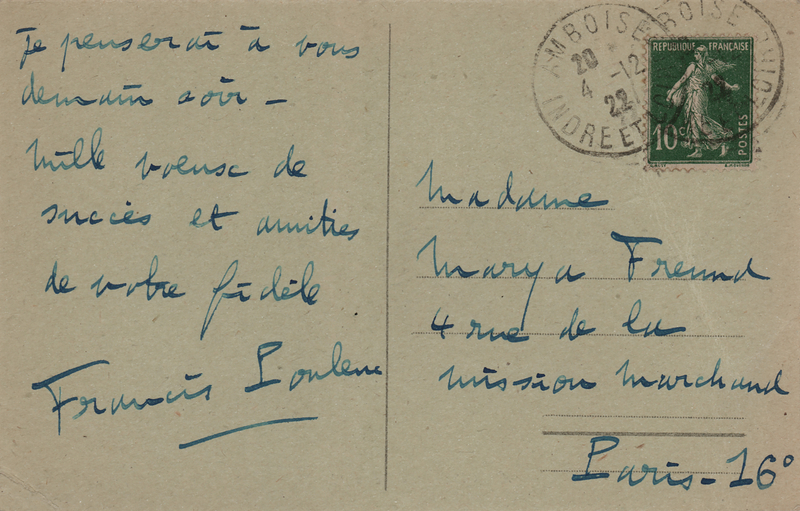 Je penserai à vous
demain soir –
Mille voeux de
succès et amitiés
de votre fidèle
Francis Poulenc
AMBOISE
20
4 -12
22
INDRE ET
REPUBLIQUE FRANÇAISE
10 c
POSTES
Madame
Marya Freund
4 rue de la
mission marchand
Paris - 16°